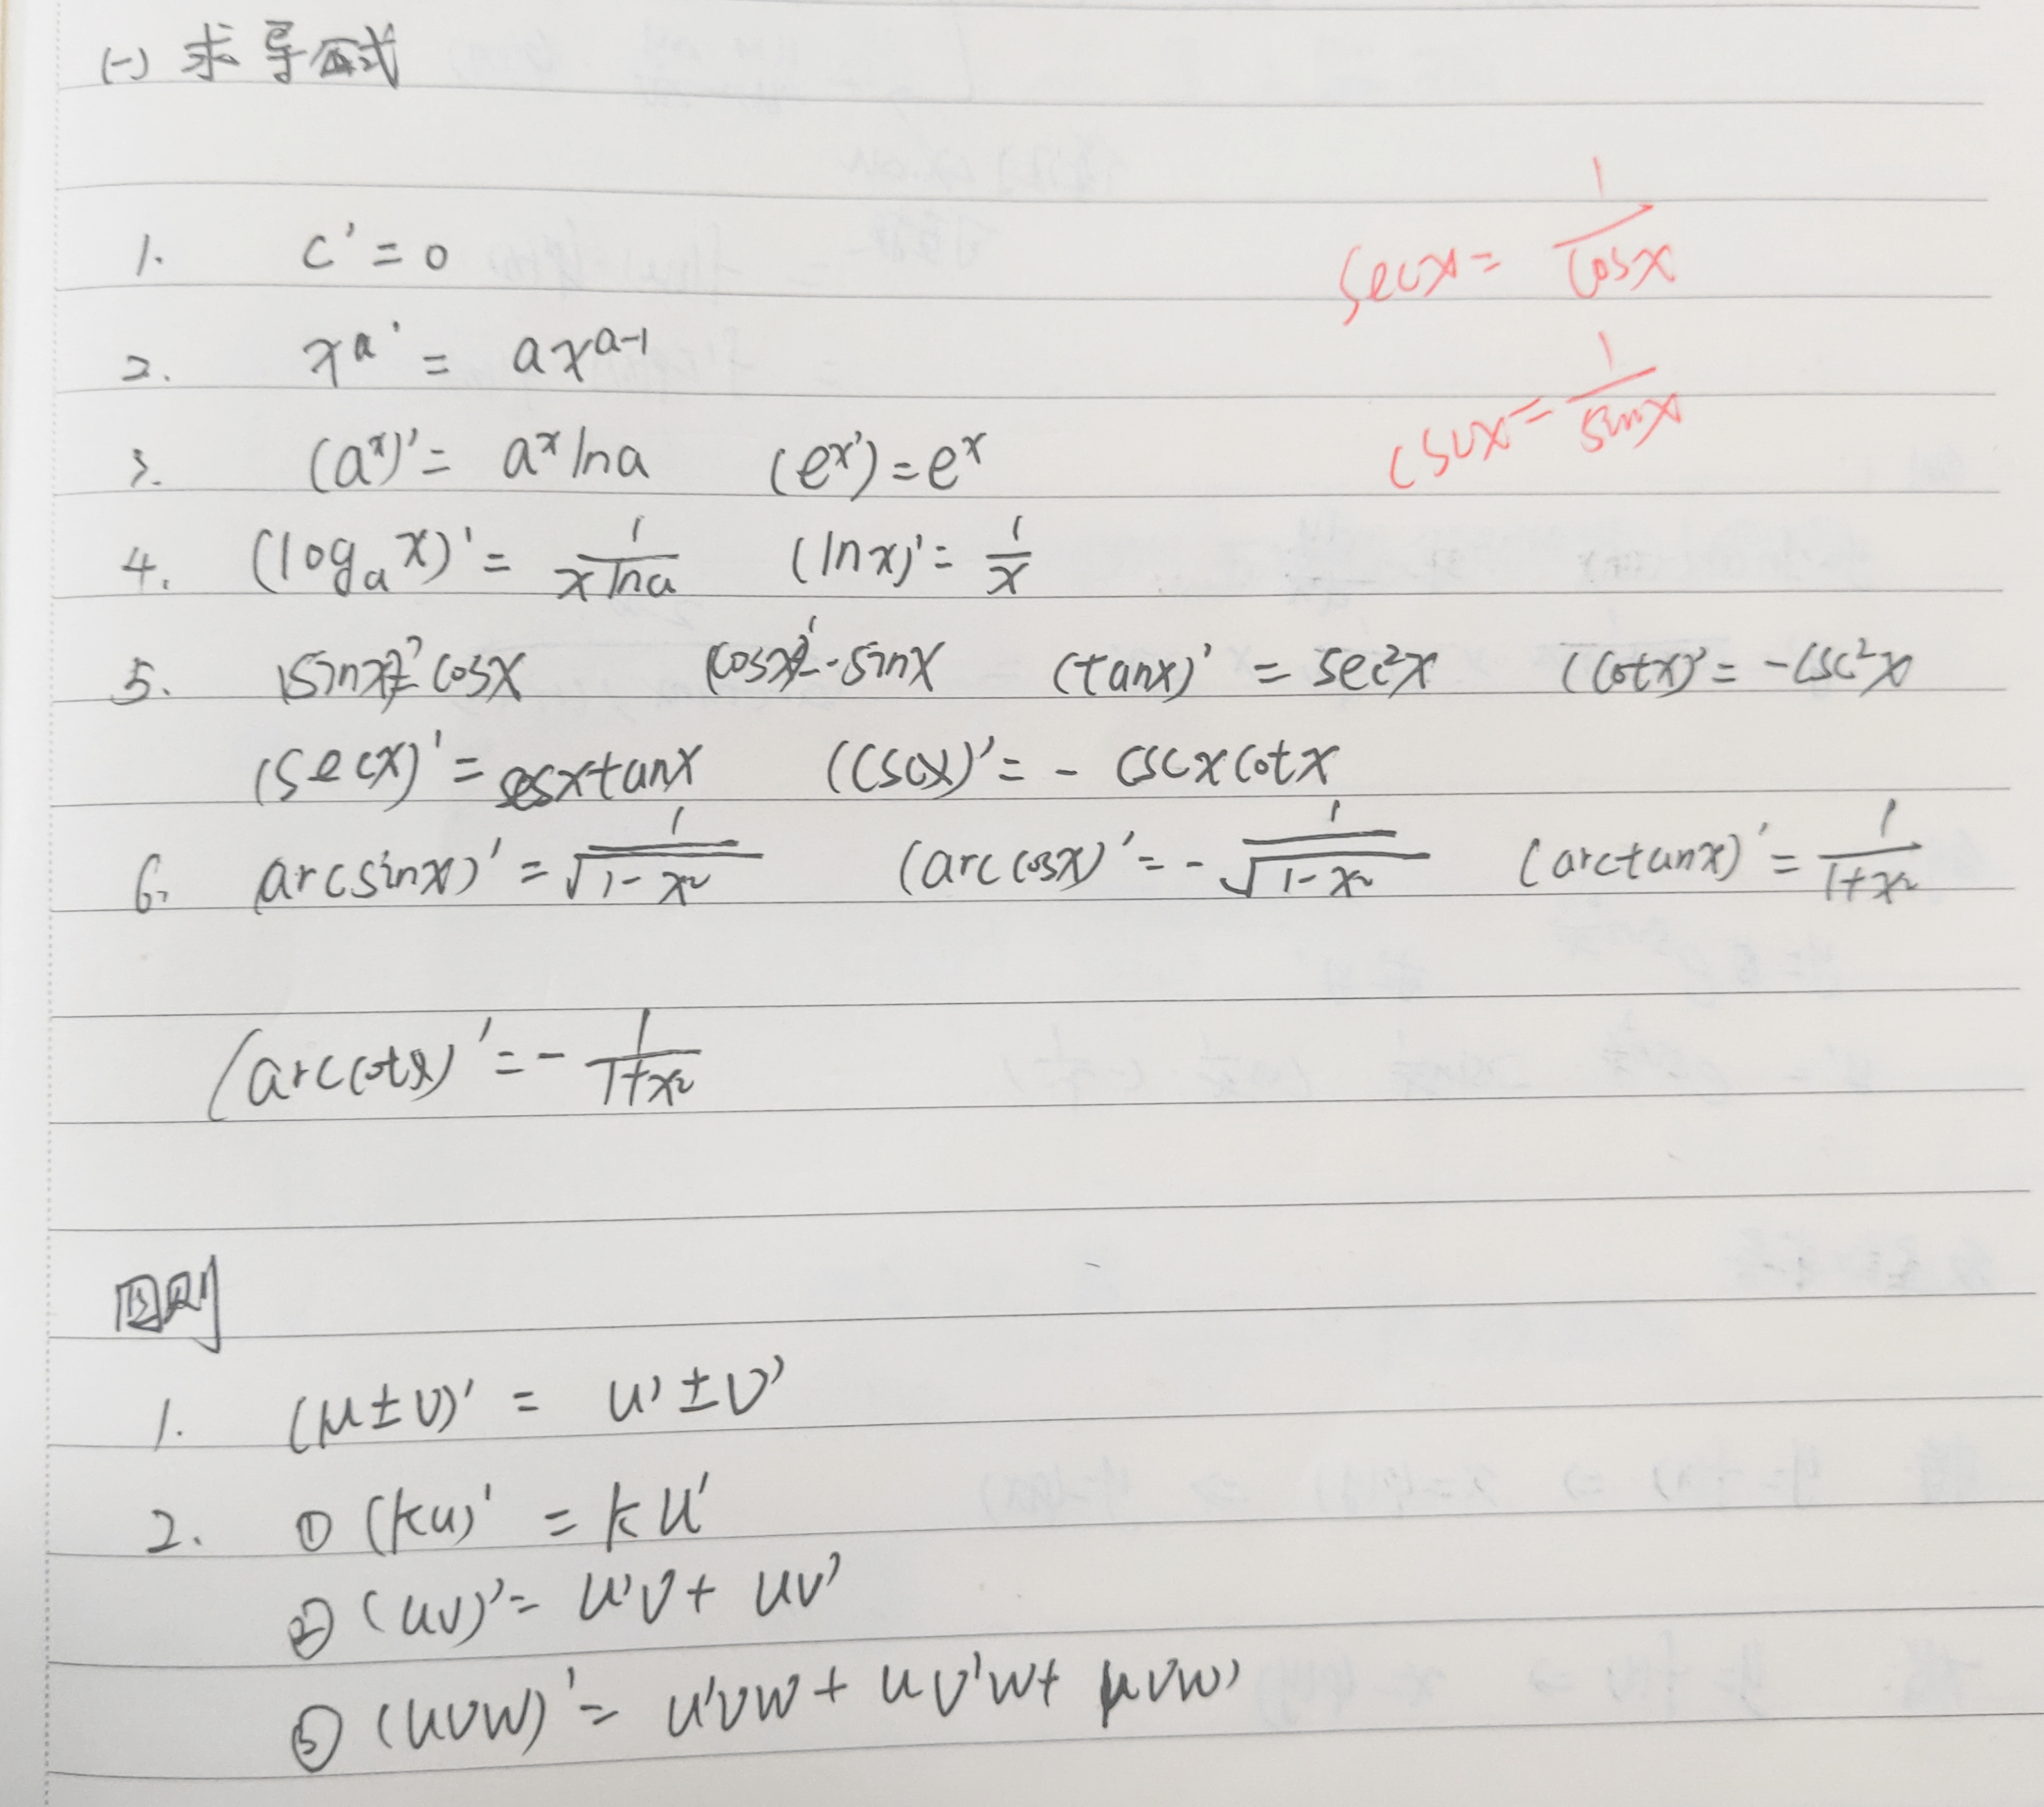 (一) 求导公式
1. C' = 0
secx = 1/cosx
2. x^a' = ax^(a-1)
cscx = 1/sinx
3. (a^x)' = a^x lna (e^x') = e^x
4. (log_a x)' = 1/(x lna) (lnx)' = 1/x
5. (sinx)' = cosx (cosx)' = -sinx (tanx)' = sec²x (cotx)' = -csc²x
(secx)' = secxtanx (cscx)' = - cscxcotx
6. (arcsinx)' = 1/√(1-x²) (arccosx)' = - 1/√(1-x²) (arctanx)' = 1/(1+x²)
(arccotx)' = - 1/(1+x²)
四则
1. (μ±v)' = u'±v'
2. ① (ku)' = ku'
② (uv)' = u'v + uv'
③ (uvw)' = u'vw + uv'w + μvw'